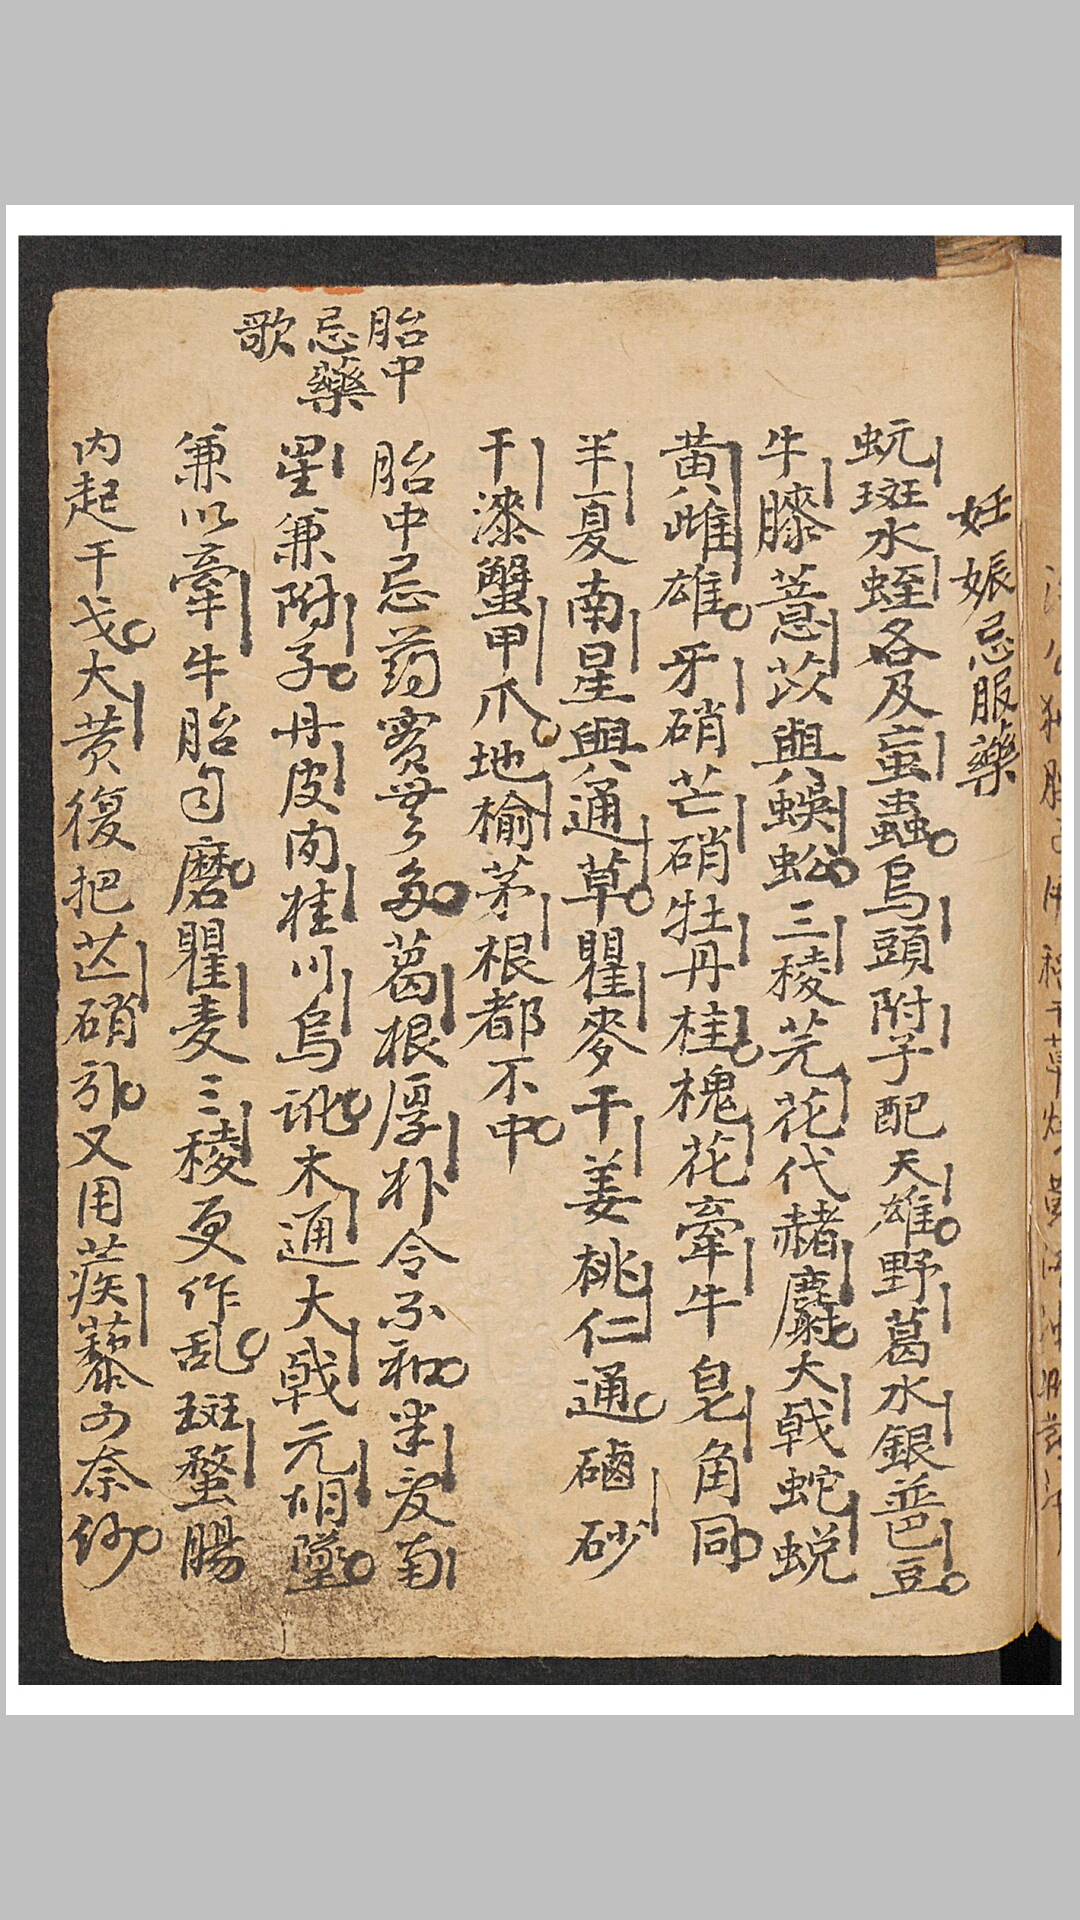 妊娠忌服藥
蚖斑水蛭各及虻蟲烏頭附子配天雄野葛水銀並巴豆
牛膝薏苡與蜈蚣三稜芫花代赭麝大戟蛇蛻
黃雌雄牙硝芒硝牡丹桂槐花牽牛皂角同
半夏南星與通草瞿麥干姜桃仁通硇砂
干漆蟹甲爪地榆茅根都不中
胎中
忌藥
歌
胎中忌药寔無多葛根厚朴令不和半夏南
星兼附子丹皮肉桂川烏訛木通大戟元胡墜
兼以牽牛胎自磨瞿麦三稜更作乱斑蝥腸
内起干戈大黄復把芒硝引又用蒺藜奈何